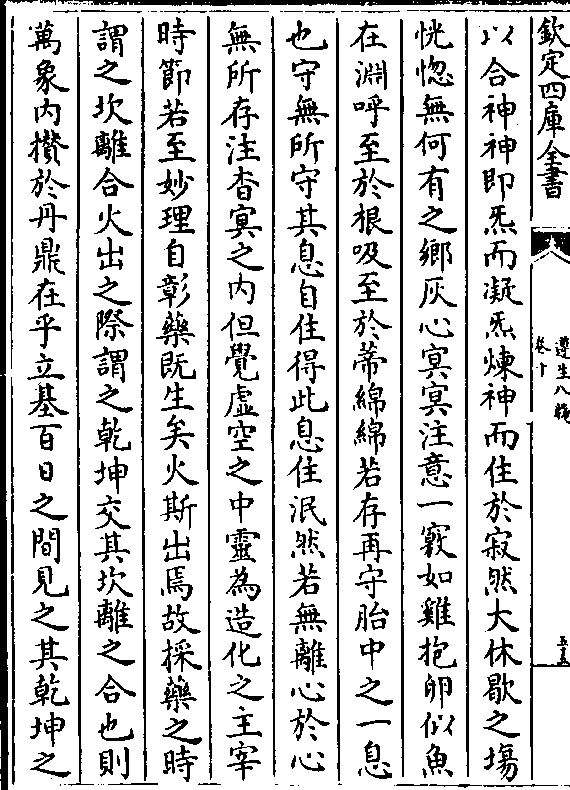 欽定四庫全書
遵生八牋
卷十
五十五
以合神神即炁而凝炁煉神而住於寂然大休歇之場
恍惚無何有之鄉灰心冥冥注意一竅如雞抱卵似魚
在淵呼至於根吸至於蒂綿綿若存再守胎中之一息
也守無所守其息自住得此息住泯然若無離心於心
無所存注杳冥之內但覺虛空之中靈為造化之主宰
時節若至妙理自彰藥既生矣火斯出焉故採藥之時
謂之坎離合火出之際謂之乾坤交其坎離之合也則
萬象內攅於丹鼎在乎立基百日之間見之其乾坤之